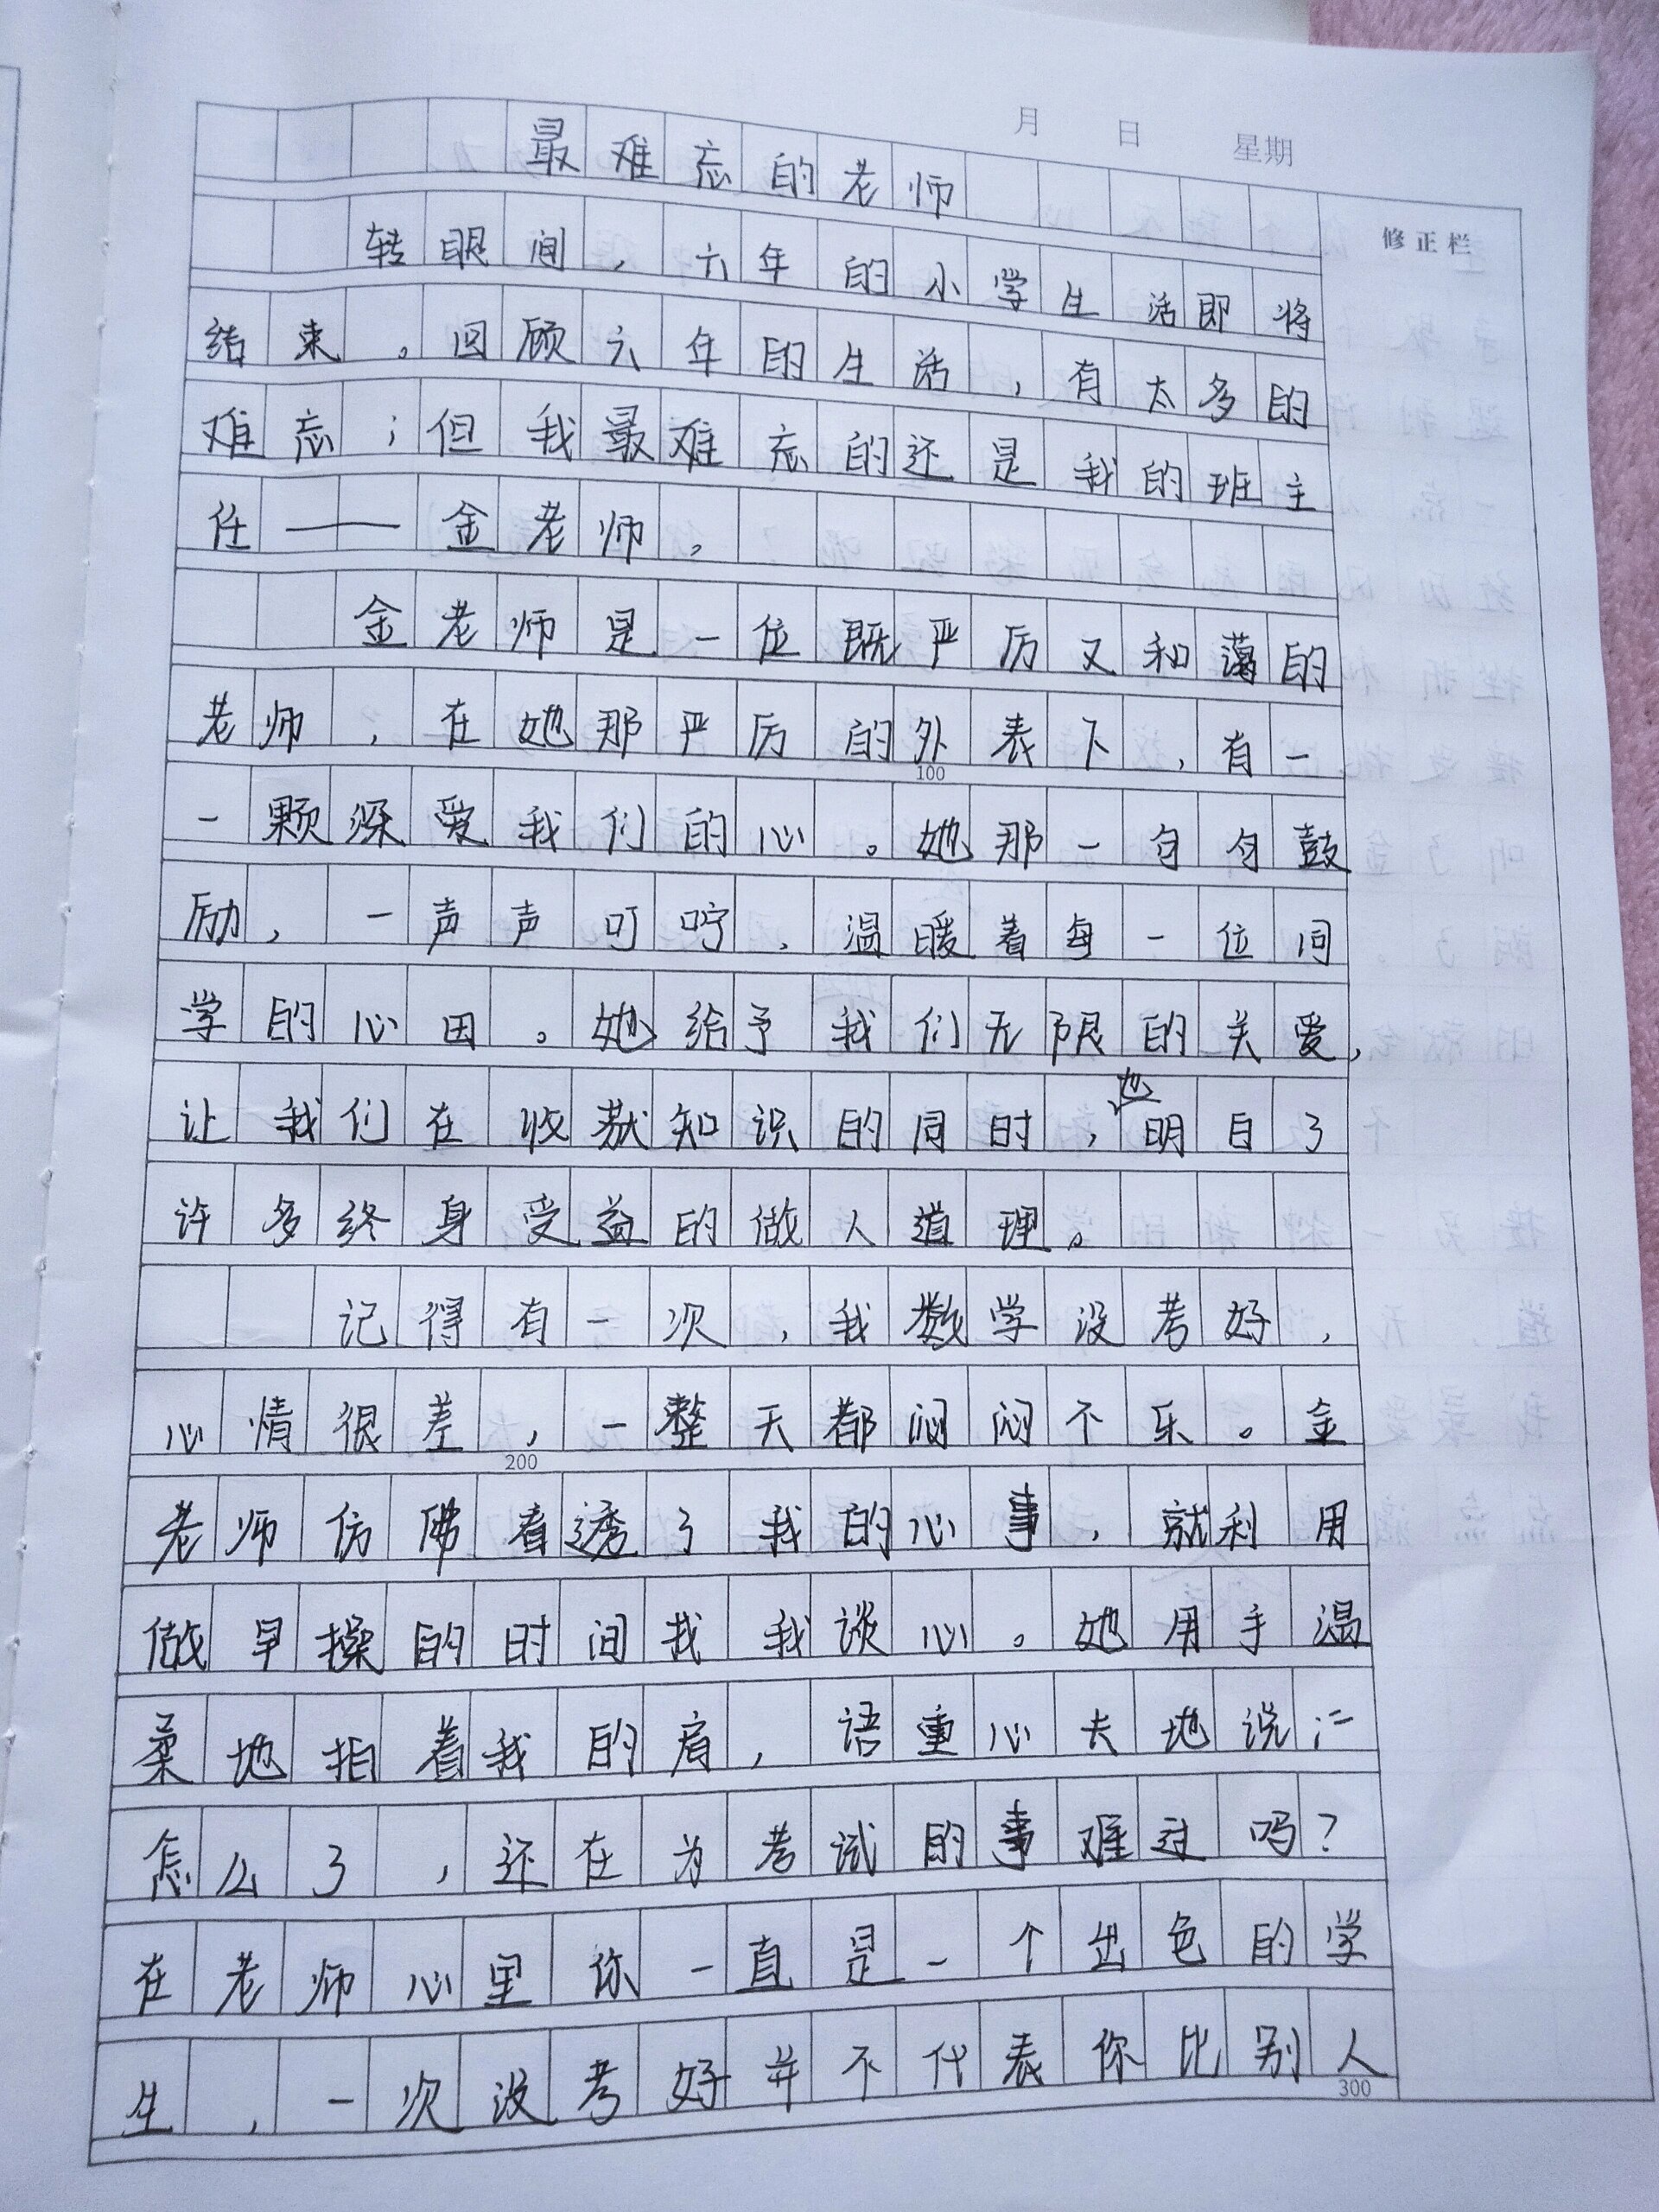 月 日 星期
最难忘的老师
修正栏
转眼间，六年的小学生活即将
结束。回顾六年的生活，有太多的
难忘；但我最难忘的还是我的班主
任——金老师。
金老师是一位既严厉又和蔼的
老师，在她那严厉的外表下，有一
100
一颗深爱我们的心。她那一句句鼓
励，一声声叮咛，温暖着每一位同
学的心田。她给予我们无限的关爱，
让我们在收获知识的同时，也明白了
许多终身受益的做人道理。
记得有一次，我数学没考好，
心情很差，一整天都闷闷不乐。金
200
老师仿佛看透了我的心事，就利用
做早操的时间找我谈心。她用手温
柔地拍着我的肩，语重心长地说：“
怎么了，还在为考试的事难过吗？
在老师心里你一直是一个出色的学
生，一次没考好并不代表你比别人
300